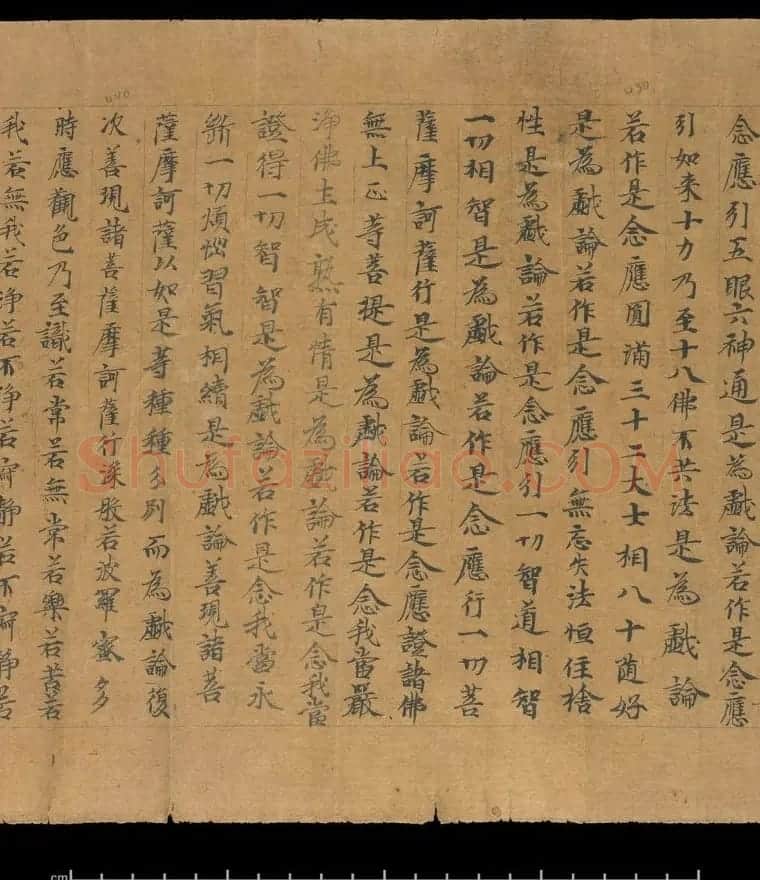 念應引五眼六神通是為戲論若作是念應
引如来十力乃至十八佛不共法是為戲論
若作是念應圓滿三十二大士相八十随好
是為戲論若作是念應引無忘失法恒住捨
性是為戲論若作是念應引一切智道相智
一切相智是為戲論若作是念應行一切菩
薩摩訶薩行是為戲論若作是念應證諸佛
無上正等菩提是為戲論若作是念我當嚴
淨佛土成熟有情是為戲論若作是念我當
證得一切智智是為戲論若作是念我當永
斷一切煩惱習氣相續是為戲論善現諸菩
薩摩訶薩以如是等種種分別而為戲論復
次善現諸菩薩摩訶薩行深般若波羅蜜多
時應觀色乃至識若常若無常若樂若苦若
我若無我若淨若不淨若寂靜若不寂靜若
Shufaziliao.COM
cm